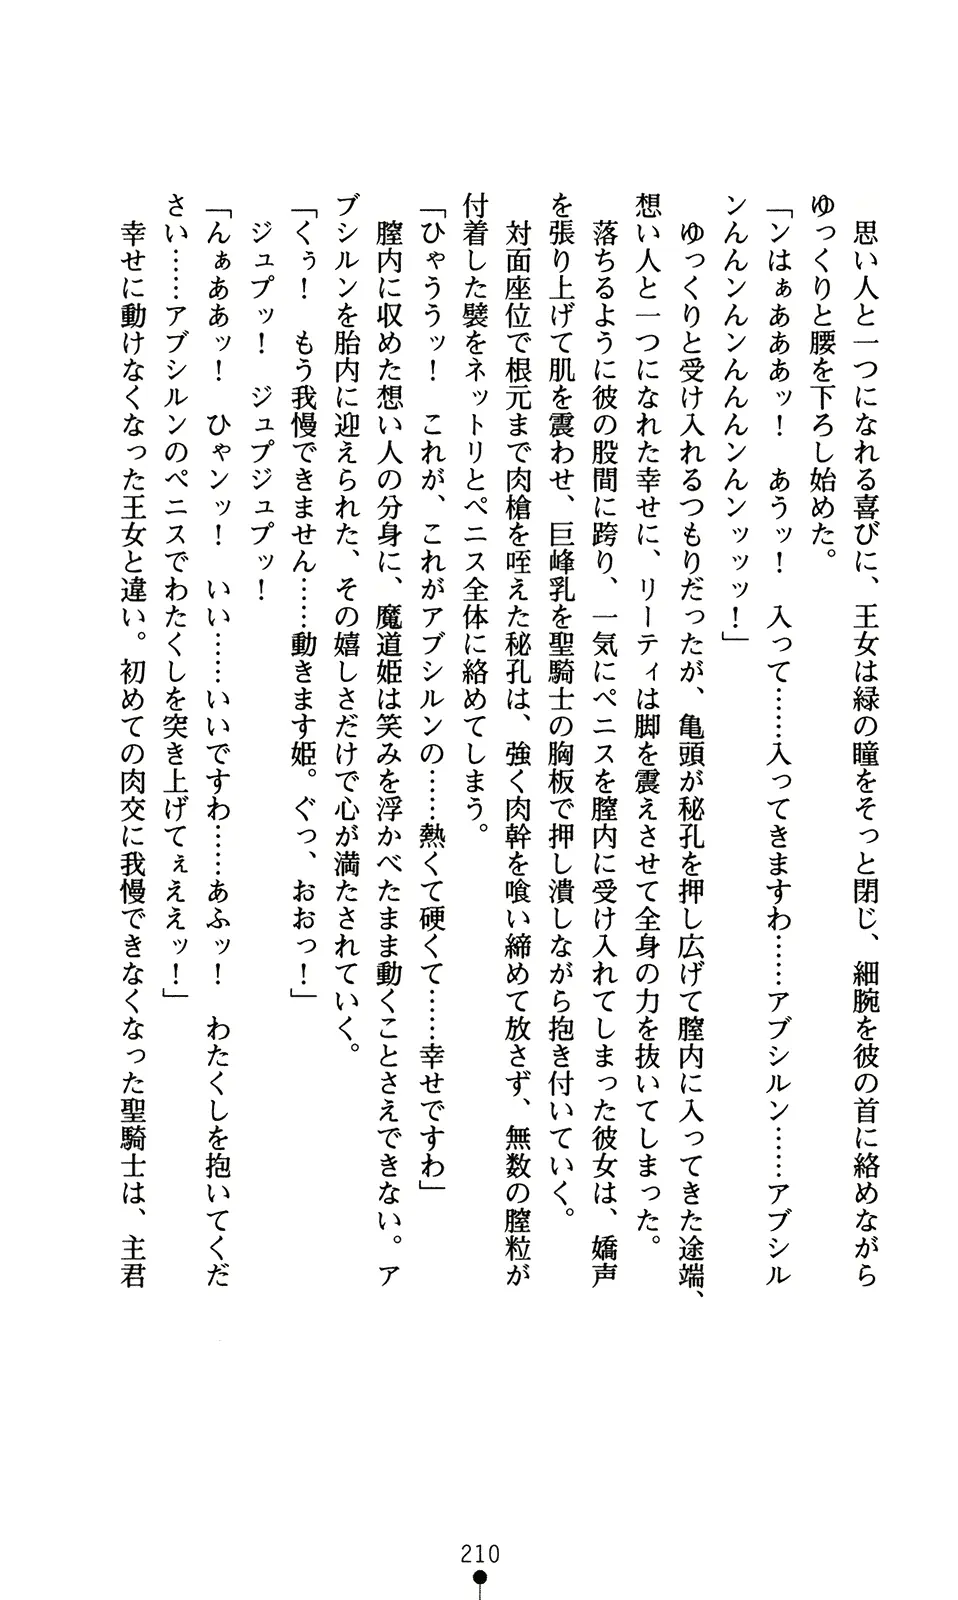 思い人と一つになれる喜びに、王女は緑の瞳をそっと閉じ、細腕を彼の首に絡めながら
ゆっくりと腰を下ろし始めた。
「ンはぁああッ！　あうッ！　入って……入ってきますわ……アブシルン……アブシル
ンんんンんンんんんンんンッッッ！」
ゆっくりと受け入れるつもりだったが、亀頭が秘孔を押し広げて膣内に入ってきた途端、
想い人と一つになれた幸せに、リーティは脚を震えさせて全身の力を抜いてしまった。
落ちるように彼の股間に跨り、一気にペニスを膣内に受け入れてしまった彼女は、嬌声
を張り上げて肌を震わせ、巨峰乳を聖騎士の胸板で押し潰しながら抱き付いていく。
対面座位で根元まで肉槍を咥えた秘孔は、強く肉幹を喰い締めて放さず、無数の膣粒が
付着した襞をネットリとペニス全体に絡めてしまう。
「ひゃううッ！　これが、これがアブシルンの……熱くて硬くて……幸せですわ」
膣内に収めた想い人の分身に、魔道姫は笑みを浮かべたまま動くことさえできない。ア
ブシルンを胎内に迎えられた、その嬉しさだけで心が満たされていく。
「くぅ！　もう我慢できません……動きます姫。ぐっ、おおっ！」
ジュプッ！　ジュプジュプッ！
「んぁああッ！　ひゃンッ！　いい……いいですわ……あふッ！　わたくしを抱いてくだ
さい……アブシルンのペニスでわたくしを突き上げてぇええッ！」
幸せに動けなくなった王女と違い。初めての肉交に我慢できなくなった聖騎士は、主君
210